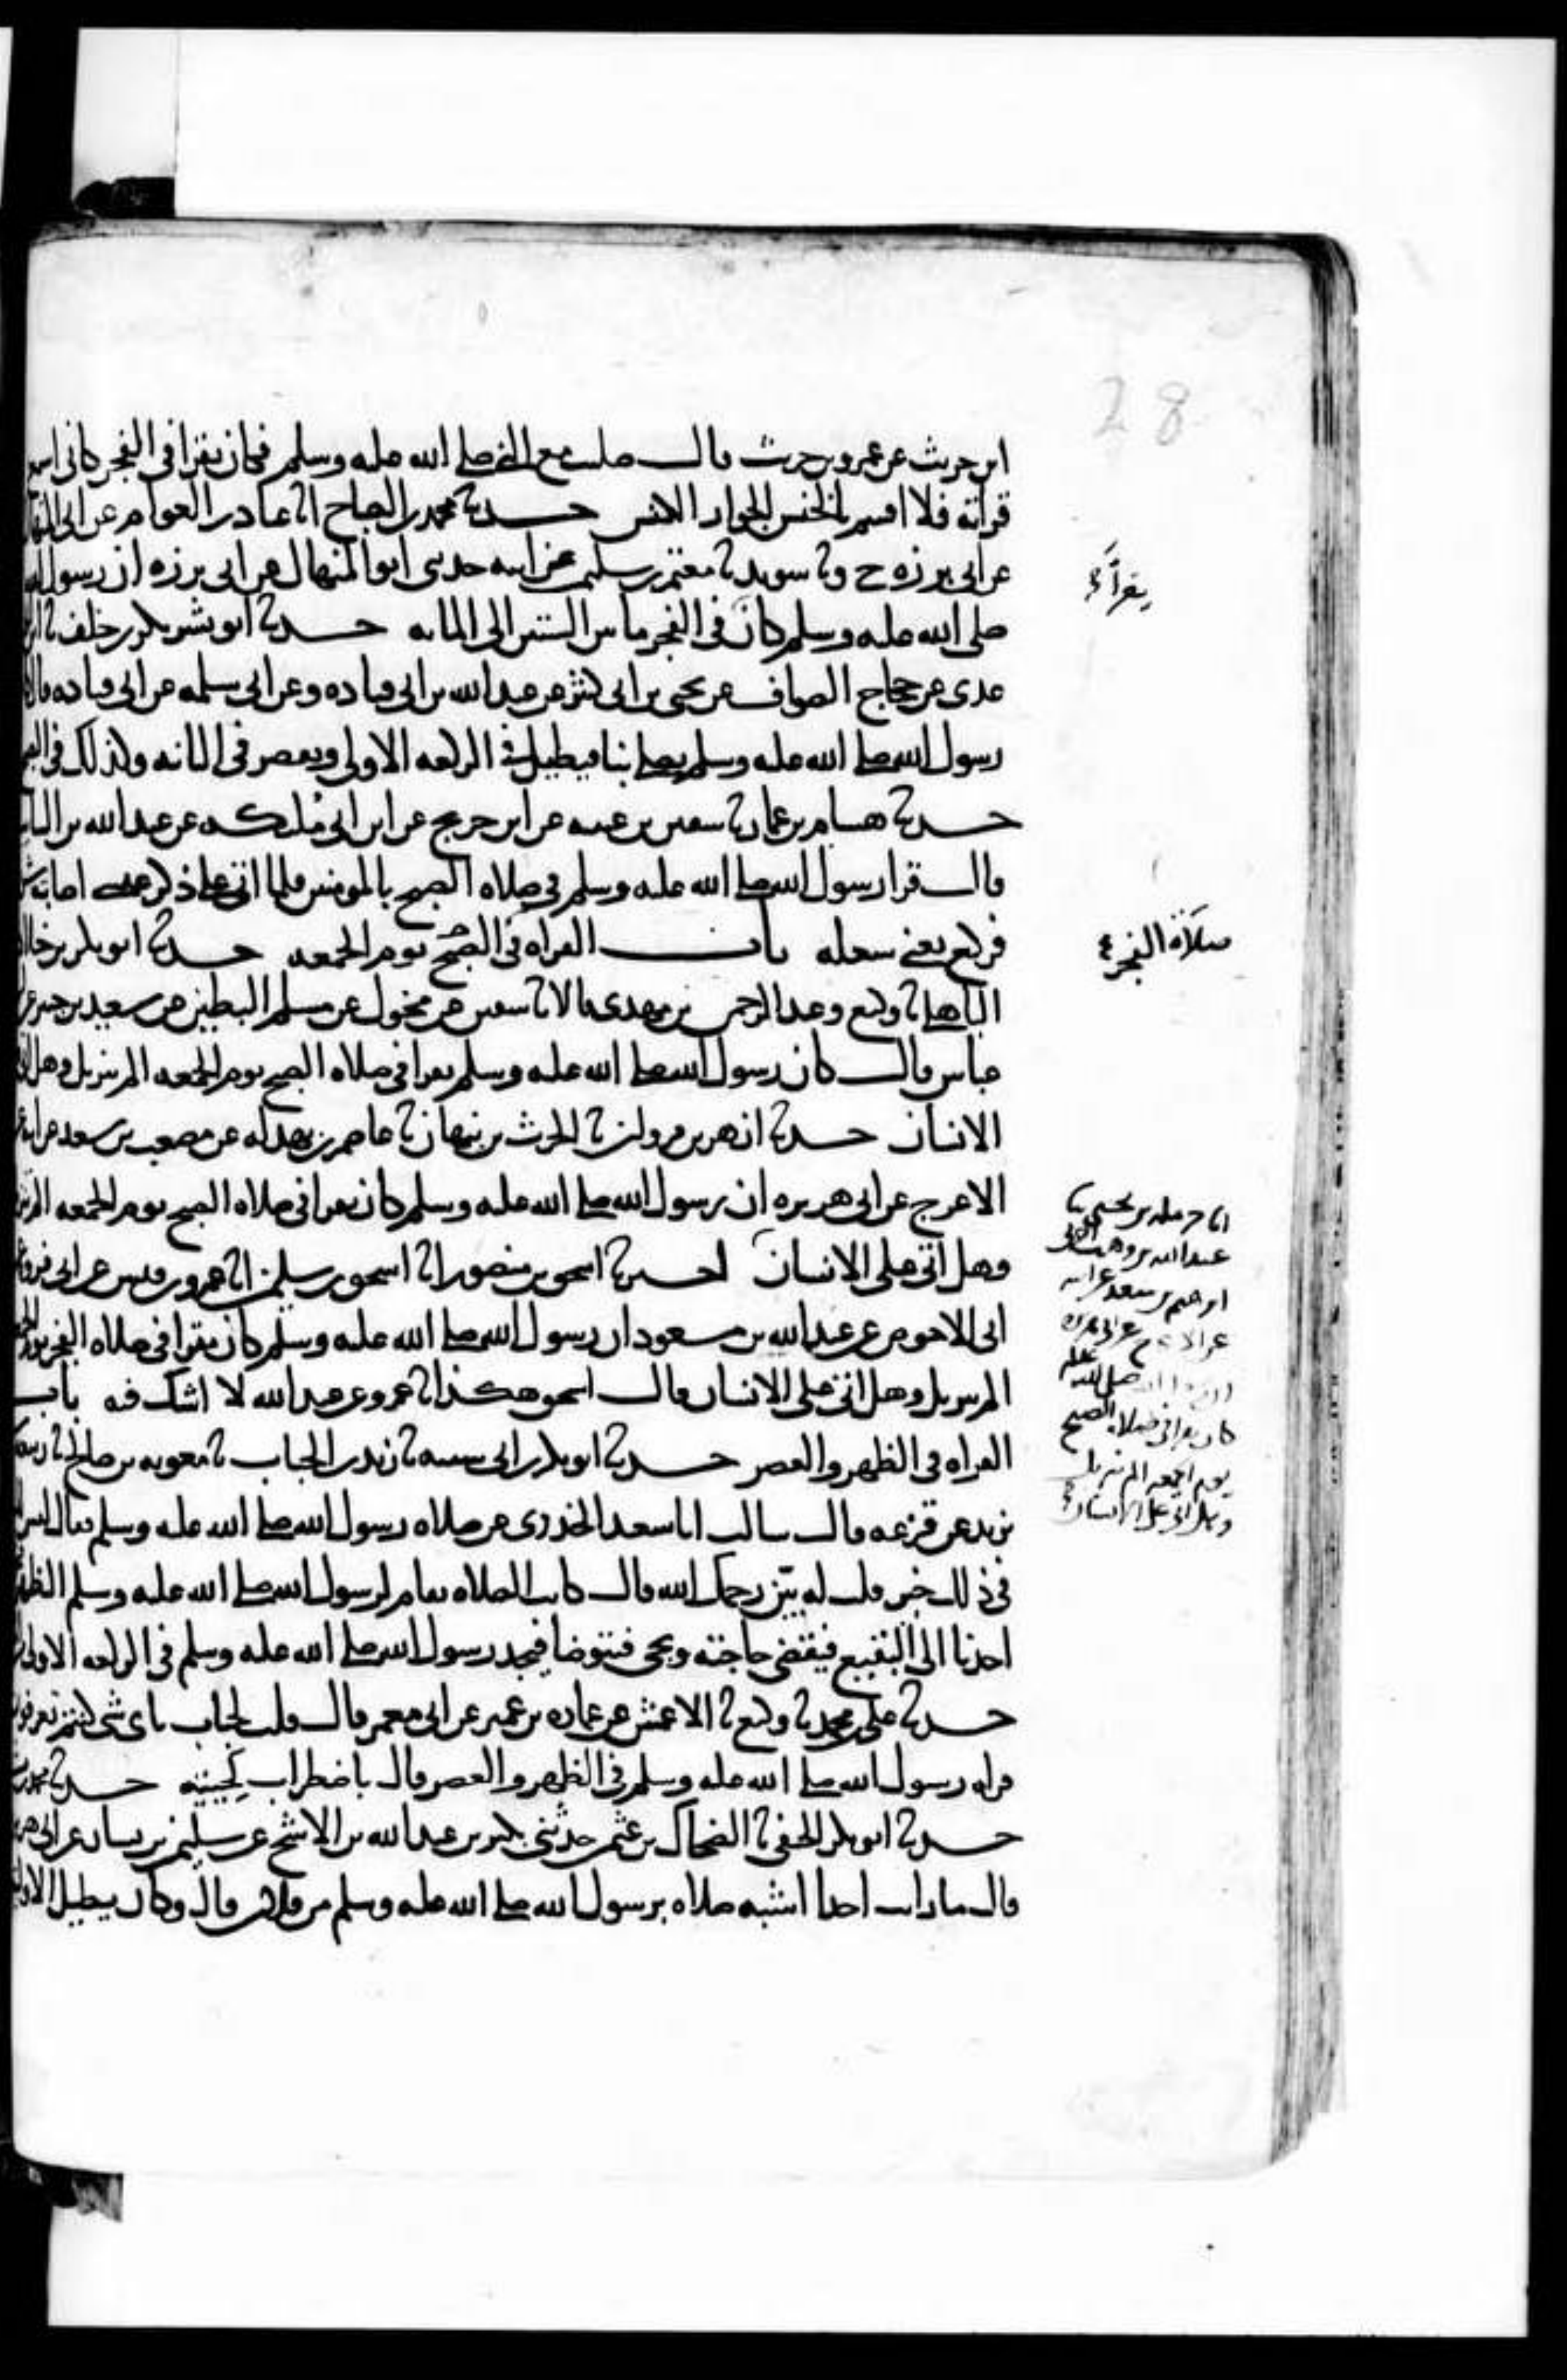 28
ابن حريث عن عمرو بن حريث قال صليت مع النبي صلى الله عليه وسلم فكان يقرا في الفجر كاني اسمع
قراته فلا اقسم بالخنس الجوار الكنس حدثنا محمد بن الصباح انا عباد بن العوام عن ابي المنهال
عن ابي برزه ح ونا سويد نا معتمر بن سليمن عن ابيه حدثني ابو المنهال عن ابي برزه ان رسول الله
صلى الله عليه وسلم كان في الفجر ما بين الستين الى المائه حدثنا ابو بشر بكر بن خلف نا ابن
عدي عن حجاج الصواف عن يحيى بن ابي كثير عن عبد الله بن ابي قتاده وعن ابي سلمه عن ابي قتاده قال كان
رسول الله صلى الله عليه وسلم يصلي بنا فيطيل في الركعه الاولى ويقصر في الثانيه وكذلك في الصبح
حدثنا هشام بن عمار نا سفين بن عيينه عن ابن جريج عن ابن ابي مليكه عن عبد الله بن السائب
قال قرا رسول الله صلى الله عليه وسلم في صلاه الصبح بالمومنين فلما اتى على ذكر عيسى اصابته
فركع يعني سعله باب القراه في الصبح يوم الجمعه حدثنا ابو بكر بن خلاد
الباهلي نا وكيع وعبد الرحمن بن مهدي قالا نا سفين عن مخول عن مسلم البطين عن سعيد بن جبير عن
عباس قال كان رسول الله صلى الله عليه وسلم يقرا في صلاه الصبح يوم الجمعه الم تنزيل وهل اتى
الانسان حدثنا ازهر بن مروان نا الحرث بن نبهان نا عاصم بن بهدله عن مصعب بن سعد عن ابيه
الاعرج عن ابي هريره ان رسول الله صلى الله عليه وسلم كان يقرا في صلاه الصبح يوم الجمعه الم تنزيل
وهل اتى على الانسان حدثنا اسحق بن منصور انا اسحق بن سليمن انا عمرو بن قيس عن ابي فروه
ابي الاحوص عن عبد الله بن مسعود ان رسول الله صلى الله عليه وسلم كان يقرا في صلاه الفجر يوم الجمعه
الم تنزيل وهل اتى على الانسان قال اسحق هكذا نا عمرو عن عبد الله لا اشك فيه باب
القراه في الظهر والعصر حدثنا ابو بكر بن ابي شيبه نا زيد بن الحباب نا معويه بن صالح نا ربيعه
يزيد عن قزعه قال سالت ابا سعيد الخدري عن صلاه رسول الله صلى الله عليه وسلم فقال ليس لك
في ذلك خير قلت له بيّن رحمك الله قال كانت الصلاه تقام لرسول الله صلى الله عليه وسلم الظهر
احدنا الى البقيع فيقضي حاجته ويجي فيتوضا فيجد رسول الله صلى الله عليه وسلم في الركعه الاولى
حدثنا علي بن محمد نا وكيع نا الاعمش عن عماره بن عمير عن ابي معمر قال قلت لخباب باي شي كنتم تعرفون
قراه رسول الله صلى الله عليه وسلم في الظهر والعصر قال باضطراب لحيته حدثنا محمد بن
حدثنا ابو بكر الحنفي نا الضحاك بن عثمن حدثني بكير بن عبد الله بن الاشج عن سليمن بن يسار عن ابي هريره
قال ما رايت احدا اشبه صلاه برسول الله صلى الله عليه وسلم من فلان قال وكان يطيل الاوليين
يقرأ
صلاة الفجر
انا حرمله بن يحيى نا
عبد الله بن وهب
ابرهيم بن سعد عن ابيه
عن الاعرج عن ابي هريره
صلى الله عليه
كان يقرا في صلاه الصبح
يوم الجمعه الم تنزيل
وهل اتى على الانسان